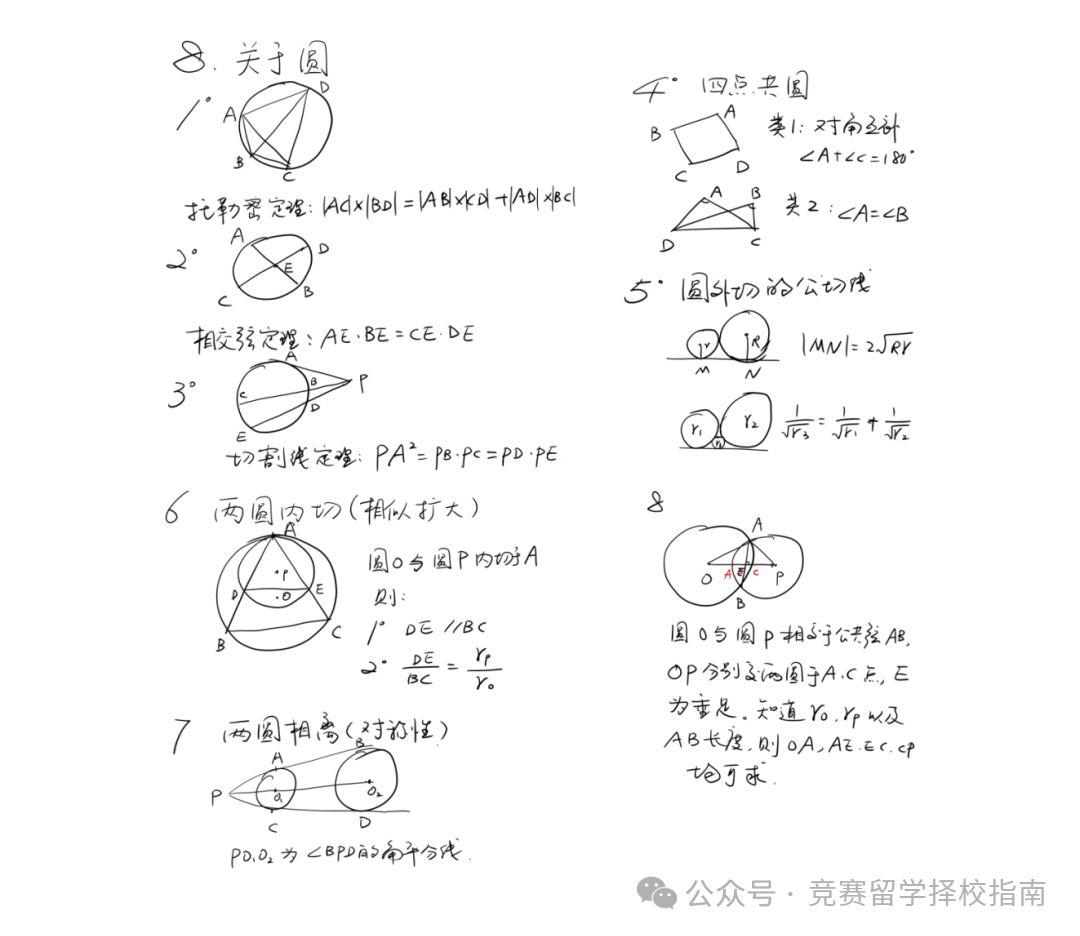 8. 关于圆
1°
A
D
B
C
托勒密定理: |AC|×|BD|=|AB|×|CD|+|AD|×|BC|
2°
A
D
E
C
B
相交弦定理: AE·BE=CE·DE
3°
A
B
P
C
D
E
切割线定理: PA²=PB·PC=PD·PE
6 两圆内切(相似扩大)
A
P
D
O
E
B
C
圆O与圆P内切于A
则:
1° DE//BC
2° DE/BC = r_P/r_O
7 两圆相离(对称性)
A
B
P
O₁
O₂
C
D
PO₁O₂为∠BPD的角平分线.
4° 四点共圆
A
B
C
D
类1: 对角互补
∠A+∠C=180°
A
B
D
C
类2: ∠A=∠B
5° 圆外切的公切线
r
R
M
N
|MN|=2√Rr
r₁
r₂
1/√r₃ = 1/√r₁ + 1/√r₂
8
A
O
A
E
C
P
B
圆O与圆P相交于公共弦AB,
OP分别交两圆于A.C点, E
为垂足。知道r_O, r_P以及
AB长度,则OA, AE.EC.CP
均可求.
公众号·竞赛留学择校指南